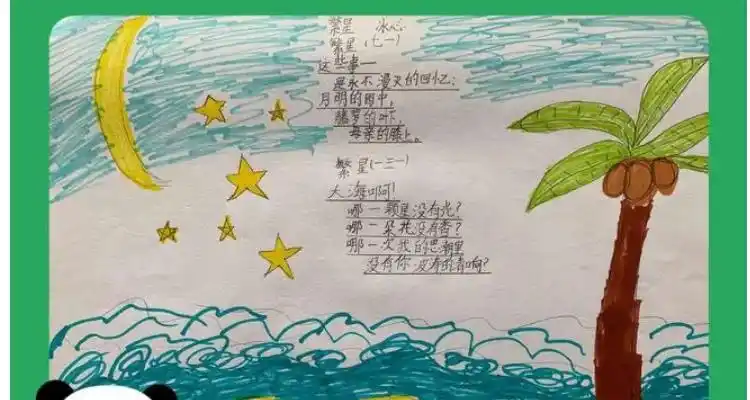 繁星 冰心
繁星(七一)
这些事——
是永不漫灭的回忆:
月明的园中,
藤萝的叶下,
母亲的膝上。
繁星(一三一)
大海啊!
哪一颗星没有光?
哪一朵花没有香?
哪一次我的思潮里
没有你波涛的清响?